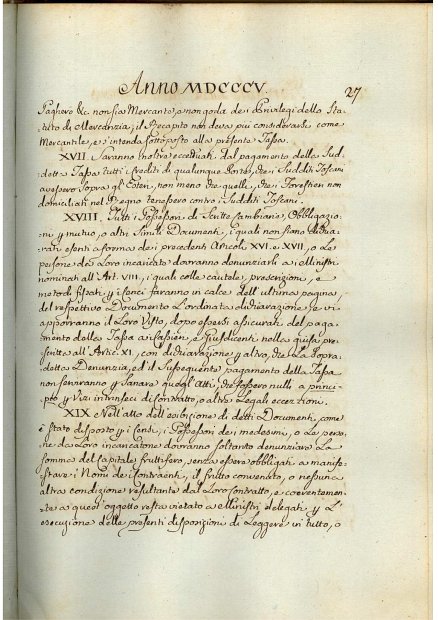 Anno MDCCCV.
27
Paghero &c. non sia Mercante, o non goda dei Privilegi dello Sta-
tuto di Mercanzia, il Recapito non deva più considerarsi come
Mercantile, e s'intenda sottoposto alla presente Tassa.
XVII. Saranno inoltre eccettuati dal pagamento delle Sud-
dette Tassa tutti i Crediti di qualunque sorte, che i Sudditi Toscani
avessero sopra gl'Esteri, non meno che quelli, che i Forestieri non
domiciliati nel Regno tenessero contro i Sudditi Toscani.
XVIII. Tutti i Possessori di Scritte Cambiarie, Obbligazio-
ni mutuo, o altri simili Documenti, i quali non siano dichia-
rati esenti a forma dei precedenti Articoli XVI. e XVII, o le
persone da Loro incaricate dovranno denunziarli a i Ministri
nominati all'Art. VIII, i quali colle cautele, prescrizioni, e
metodi fissati faranno in calce dell'ultima pagina
del respettivo Documento l'ordinata dichiarazione e vi
apporranno il Loro Visto, dopo essersi assicurati del paga-
mento della Tassa a i Cassieri, e Giusdicenti nella guisa pre-
scritta all'Artic. XI, con dichiarazione altro, che la sopra-
detta Denunzia, ed il susseguente pagamento della Tassa
non serviranno sanare quegl'Atti, che fossero nulli princi-
pio, Vizi intrinseci di Contratto, o altre Legali eccezioni.
XIX. Nell'atto dell'esibizione di detti Documenti, come
è stato disposto i Possessori dei medesimi, o le perso-
ne da Loro incaricate dovranno soltanto denunziare la
somma del Capitale fruttifero, senza essere obbligati a manife-
stare i Nomi dei Contraenti, il frutto convenuto, o nessuna
altra condizione resultante dal Loro Contratto, e coerentemen-
te a quest'oggetto resta vietato a i Ministri delegati l'e-
secuzione delle presenti disposizioni di Leggere in tutto, o